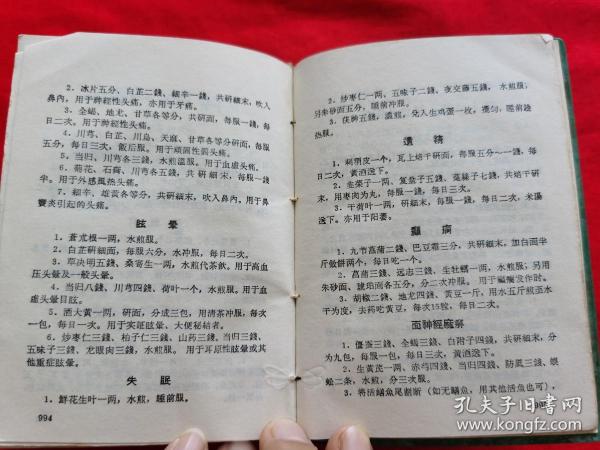 2、冰片五分、白芷二錢、細辛一錢，共研細末，吹入
鼻內，用于神經性头痛，亦用于牙痛。
3、全蝎、地龙、甘草各等分，共研細面，每服一錢，每
日二次。用于神經性头痛。
4、川芎、白芷、川烏、天麻、甘草各等分研面，每服
五分，每日三次，飯后服。用于頑固性偏头痛。
5、当归、川芎各三錢，水煎溫服。用于血虛头痛。
6、菊花、石膏、川芎各三錢，共研細末，每服一錢
半。用于外感風热头痛。
7、細辛、雄黃各等分，共研細末，吹入鼻內，用于鼻
竇炎引起的头痛。
眩暈
1、蒼朮根一两，水煎服。
2、白芷研細面，每服六分，水冲服，每日二次。
3、草决明五錢、桑寄生一两，水煎代茶飲，用于高血
压头暈及一般头暈。
4、当归八錢、川芎四錢、荷叶一个，水煎服。用于血
虛头暈目眩。
5、酒大黃一两，研面，分成三包，用清茶冲服，每次
一包，每日一次。用于实証眩暈、大便秘結者。
6、炒枣仁三錢、柏子仁三錢、山药三錢、当归三錢、
五味子三錢、龙眼肉三錢，水煎服。用于耳原性眩暈或其
他重症眩暈。
失眠
1、鮮花生叶一两，水煎，睡前服。
994
2、炒枣仁一两、五味子二錢、夜交藤五錢，水煎服；
另朱砂面五分，睡前冲服。
3、茯神五錢，濃煎，兌入生鸡蛋一枚，攪匀，睡前趁
热服。
遺精
1、刺猬皮一个，瓦上焙干研面，每服五分～一錢，每
日二次，黃酒送下。
2、韭菜子一两、复盆子五錢、菟絲子七錢，共焙干研
末，用枣肉为丸，每服一錢，每日三次。
3、干荷叶一两，研細末，每服一錢，每日二次，米湯
送下。亦用于阳萎。
癲癇
1、九节菖蒲二錢、巴豆霜三分，共研細末，加白面半
斤做餅两个，每日吃一个。
2、菖蒲三錢、远志三錢、生牡蠣一两，水煎服；另用
朱砂面、琥珀面各五分，分二次冲服。
3、胡椒二錢、地龙四錢、黃豆一斤，用水五斤煎至水
干为度，去药吃黃豆，每次15粒，每日二次。
面神經麻痹
1、僵蚕三錢、全蝎三錢、白附子四錢，共研細末，分
为九包，每服一包，每日三次，黃酒送下。
2、生黃芪一两、赤芍四錢、当归四錢、防風三錢、蜈
蚣二条，水煎，分三次服。
3、将活鱔魚尾割断（如无鱔魚，用其他活魚也可），
孔夫子旧书网
www.kongfz.com